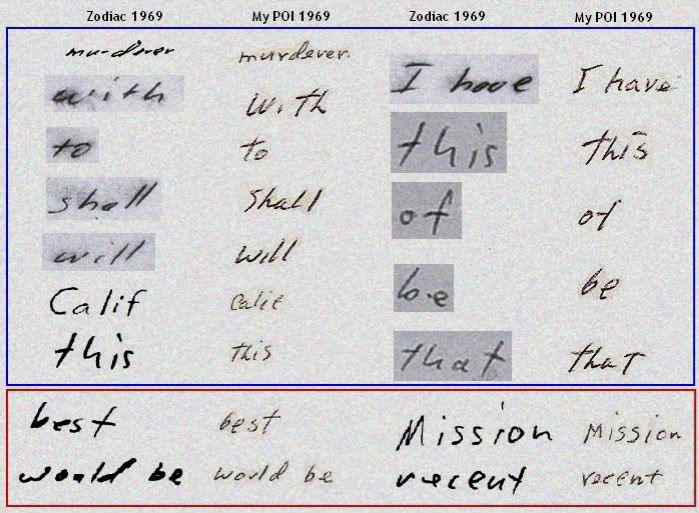 Zodiac 1969 My POI 1969 Zodiac 1969 My POI 1969
murderer murderer. I have I have
with with
to to this this
shall Shall of of
will will
Calif Calif be be
this this that that
best best Mission Mission
would be would be recent recent